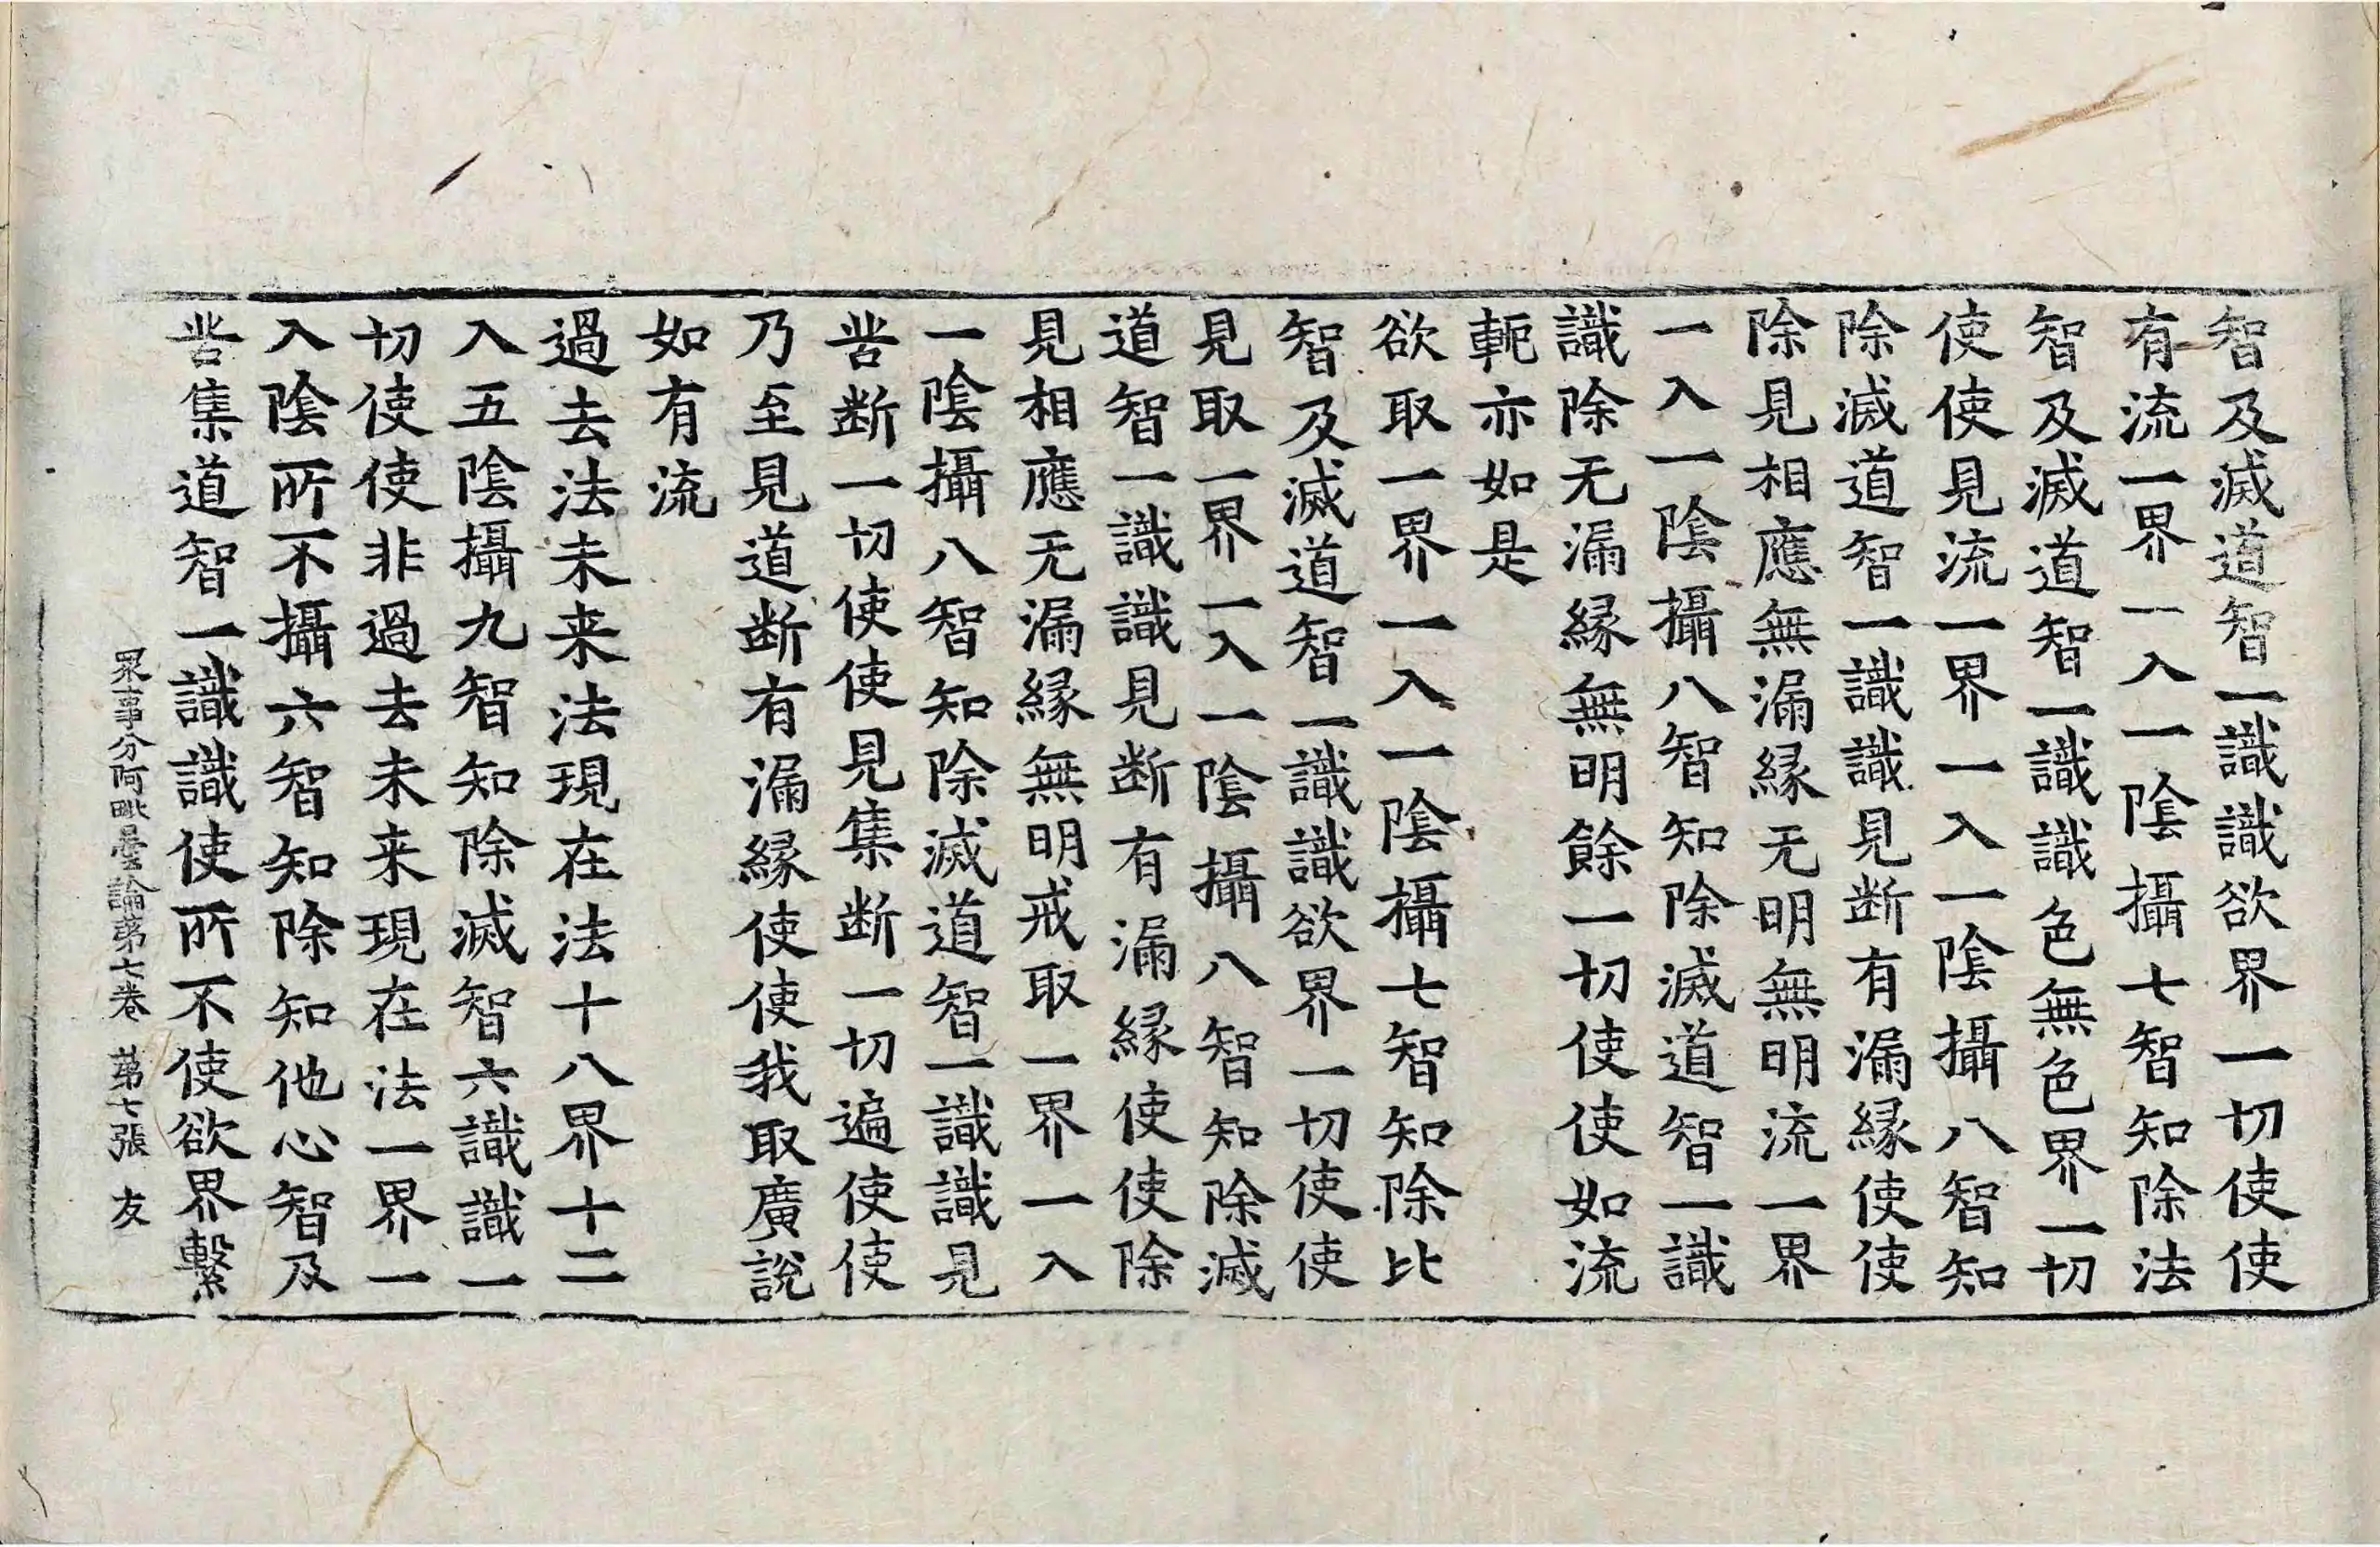 智及滅道智一識識欲界一切使使
有流一界一入一陰攝七智知除法
智及滅道智一識識色無色界一切
使使見流一界一入一陰攝八智知
除滅道智一識識見断有漏縁使使
除見相應無漏縁无明無明流一界
一入一陰攝八智知除滅道智一識
識除无漏縁無明餘一切使使如流
軛亦如是
欲取一界一入一陰攝七智知除比
智及滅道智一識識欲界一切使使
見取一界一入一陰攝八智知除滅
道智一識識見断有漏縁使使除
見相應无漏縁無明戒取一界一入
一陰攝八智知除滅道智一識識見
苦断一切使使見集断一切遍使使
乃至見道断有漏縁使使我取廣說
如有流
過去法未来法現在法十八界十二
入五陰攝九智知除滅智六識識一
切使使非過去未来現在法一界一
入陰所不攝六智知除知他心智及
苦集道智一識識使所不使欲界繫
眾事分阿毗曇論苐七卷 苐七張 友